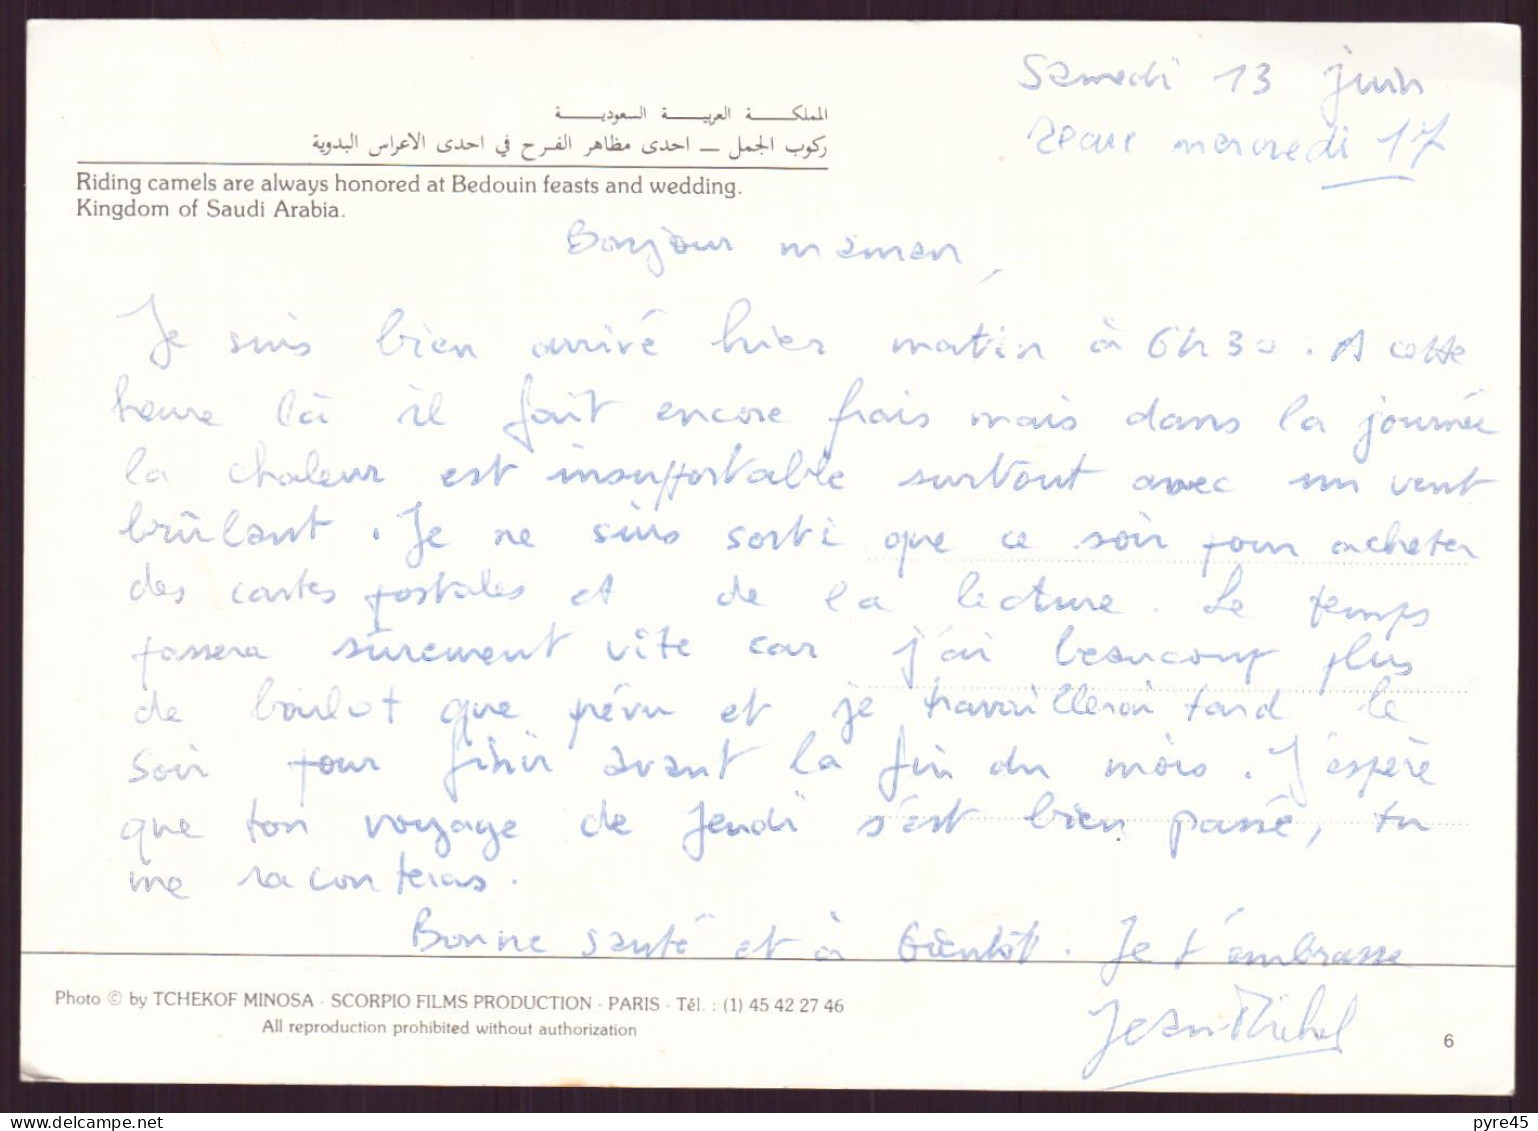 Samedi 13 juin
reçue mercredi 17
المملكة العربية السعودية
ركوب الجمل — احدى مظاهر الفرح في احدى الاعراس البدوية
Riding camels are always honored at Bedouin feasts and wedding.
Kingdom of Saudi Arabia.
Bonjour maman,
Je suis bien arrivé hier matin à 6h30. A cette
heure là il fait encore frais mais dans la journée
la chaleur est insupportable surtout avec un vent
brûlant. Je ne suis sorti que ce soir pour acheter
des cartes postales et de la lecture. Le temps
passera sûrement vite car j'ai beaucoup plus
de boulot que prévu et je travaillerai tard le
soir pour finir avant la fin du mois. J'espère
que ton voyage de Jeudi s'est bien passé, tu
me raconteras.
Bonne santé et à bientôt. Je t'embrasse
Jean-Michel
Photo © by TCHEKOF MINOSA - SCORPIO FILMS PRODUCTION - PARIS - Tél. : (1) 45 42 27 46
All reproduction prohibited without authorization
6
pyre45